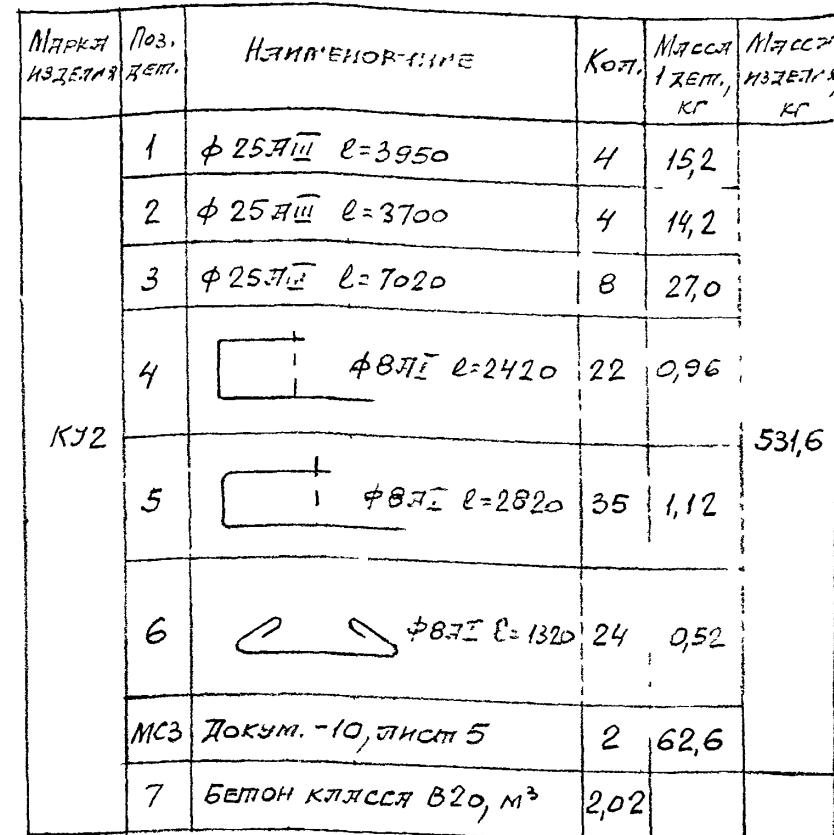 Марка изделия
Поз. дет.
Наименование
Кол.
Масса 1 дет., кг
Масса изделия, кг
КУ2
1 ϕ25АIII l=3950 4 15,2
2 ϕ25АIII l=3700 4 14,2
3 ϕ25АIII l=7020 8 27,0
4 ϕ8АI l=2420 22 0,96
531,6
5 ϕ8АI l=2820 35 1,12
6 ϕ8АI l=1320 24 0,52
МС3 Докум. -10, лист 5 2 62,6
7 Бетон класса В20, м³ 2,02